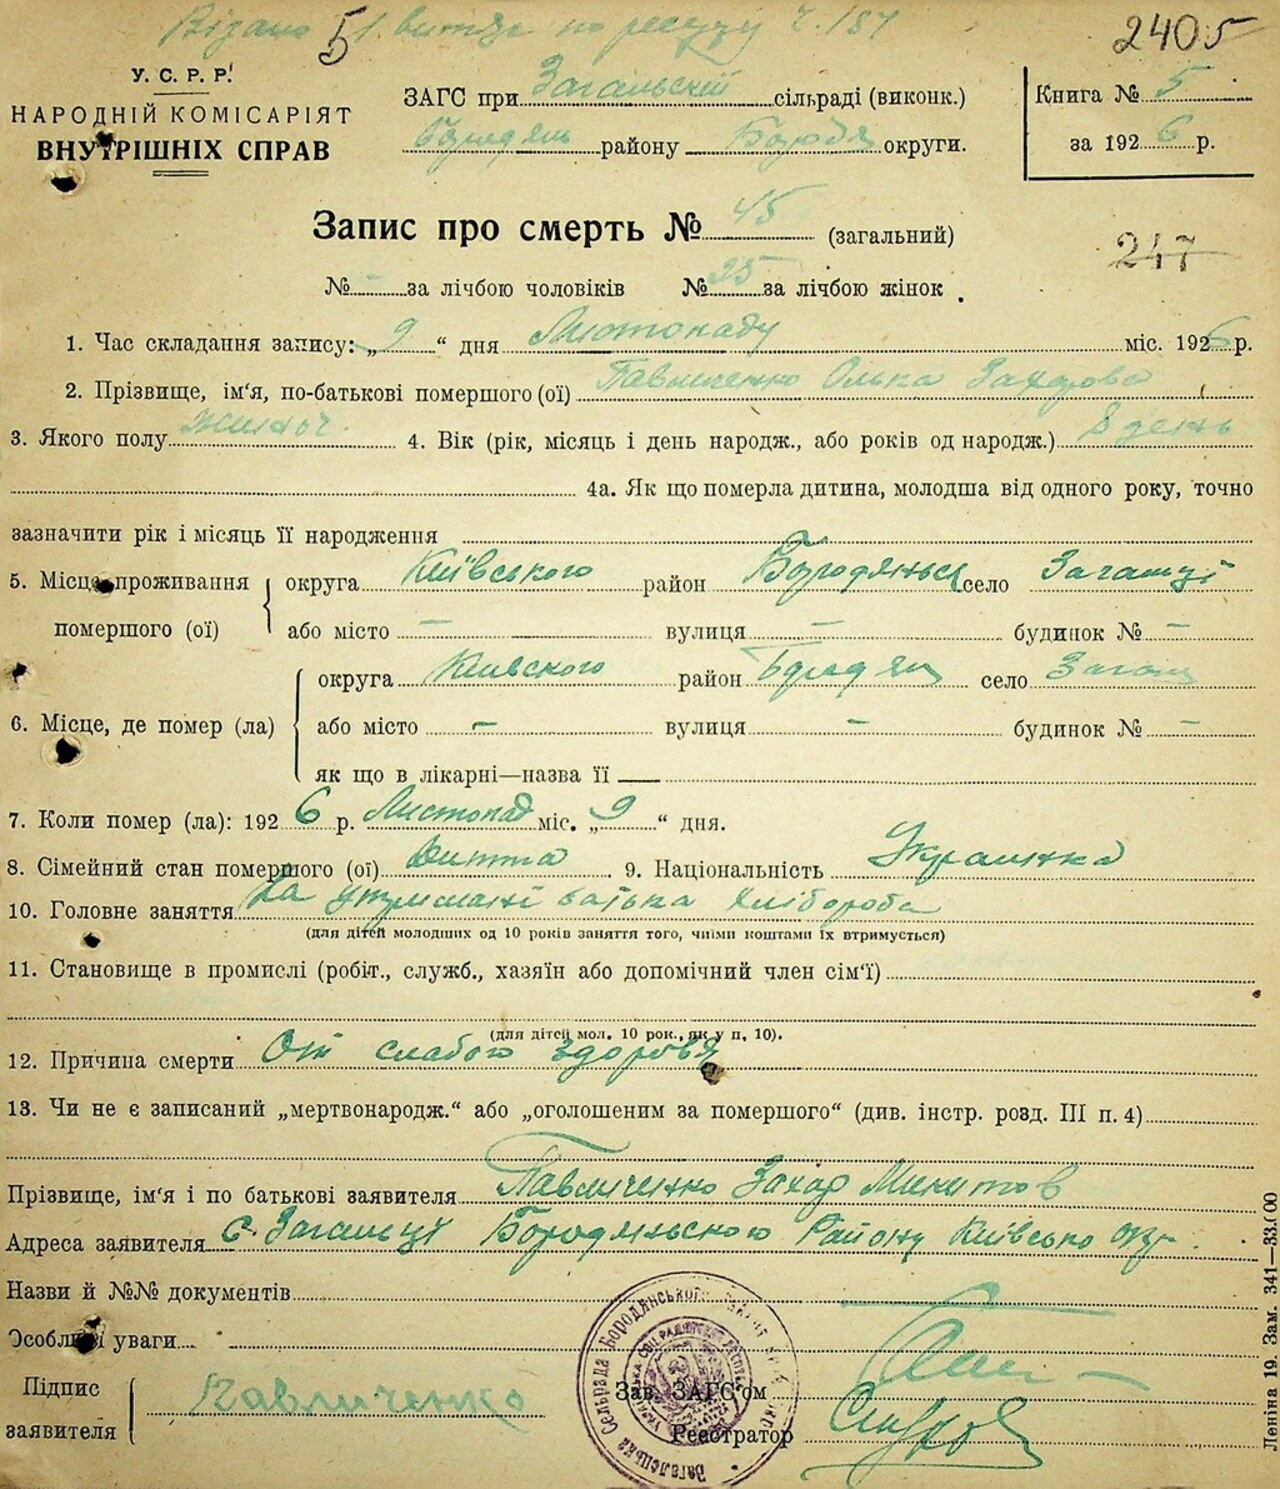 Видано витяг по реєстру Ч. 187
5
2405
У. С. Р. Р.
НАРОДНІЙ КОМІСАРІЯТ
ВНУТРІШНІХ СПРАВ
ЗАГС при Загальській сільраді (виконк.)
району округи.
Книга № 5
за 1926 р.
Запис про смерть № 45 (загальний)
247
№ – за лічбою чоловіків № 25 за лічбою жінок
1. Час складання запису: „ 9 “ дня Листопаду міс. 1926 р.
2. Прізвище, ім'я, по-батькові помершого (ої) Павличенко Олька Захарова
3. Якого полу жиноч. 4. Вік (рік, місяць і день народж., або років од народж.) 8 день
4а. Як що померла дитина, молодша від одного року, точно
зазначити рік і місяць її народження
5. Місце проживання помершого (ої) округа Київського район Бородяньськ село Загальці
або місто – вулиця – будинок № –
6. Місце, де помер (ла) округа Київского район село
або місто – вулиця – будинок № –
як що в лікарні—назва її —
7. Коли помер (ла): 1926 р. Листопад міс. „ 9 “ дня.
8. Сімейний стан помершого (ої) Дитта 9. Національність Украінка
10. Головне заняття На утримані батька хлібороба
(для дітей молодших од 10 років заняття того, чиїми коштами їх втримується)
11. Становище в промислі (робіт., служб., хазяїн або допомічний член сім'ї)
(для дітей мол. 10 рок., як у п. 10).
12. Причина смерти От слабого здоровя
13. Чи не є записаний „мертвонародж.“ або „оголошеним за помершого“ (див. інстр. розд. III п. 4)
Прізвище, ім'я і по батькові заявителя Павличенко Захар Микитов
Адреса заявителя с. Загальці Бородяльского Району Київсько окр.
Назви й №№ документів
Особливі уваги
Підпис заявителя Павличенко
Зав. ЗАГС'ом
Реєстратор
Загалецька Сельрада Бородянського
Леніна 19. Зам. 341—33100